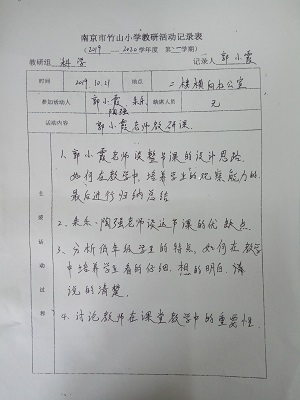 南京市竹山小学教研活动记录表
(2019——2020学年度 第一学期)
教研组 科学 记录人 郭小霞
时间 2019.10.21 地点 二楼横向办公室
参加活动人 郭小霞 朱乐 陶强 缺席人员 无
活动内容 郭小霞老师教研课.
主要活动过程
1. 郭小霞老师谈整节课的设计思路.
如何在教学中,培养学生的观察能力的.
最后进行归纳总结
2. 朱乐、陶强老师谈这节课的优缺点.
3. 分析低年级学生的特点,如何在教学
中培养学生看的仔细,想的明白,
说的清楚.
4. 讨论教师在课堂教学中的重要性.